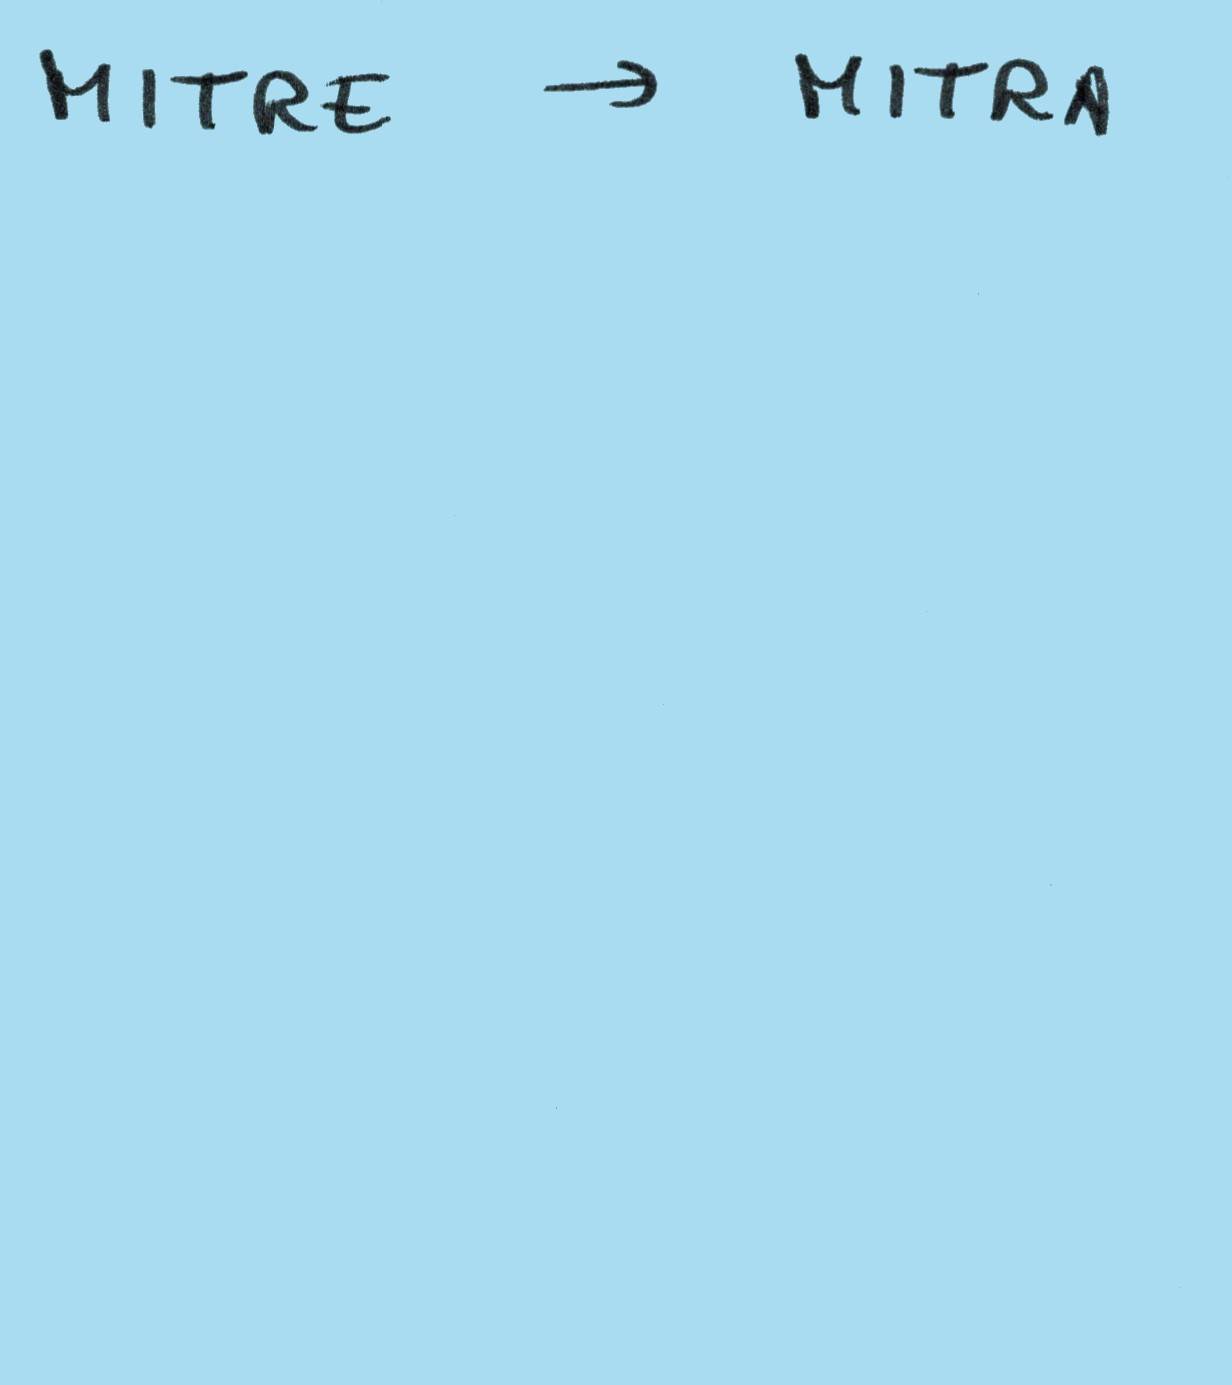 MITRE → MITRA